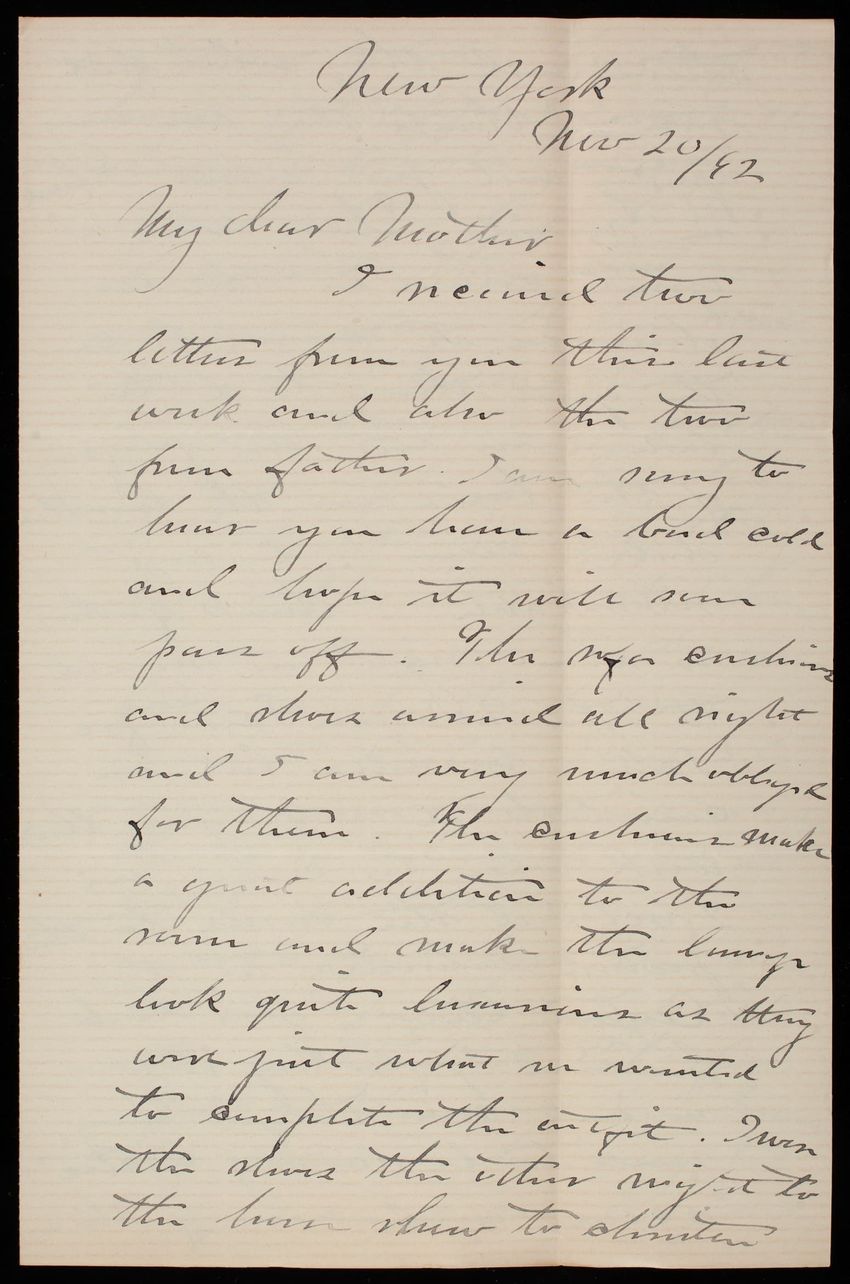 New York
Nov 20/92
My dear Mother
I received two
letters from you this last
week and also the two
from father. I am sorry to
hear you have a bad cold
and hope it will soon
pass off. The sofa cushions
and shoes arrived all right
and I am very much obliged
for them. The cushions make
a great addition to the
room and make the lounge
look quite luxurious as they
were just what we wanted
to complete the outfit. I wore
the shoes the other night to
the horse show to